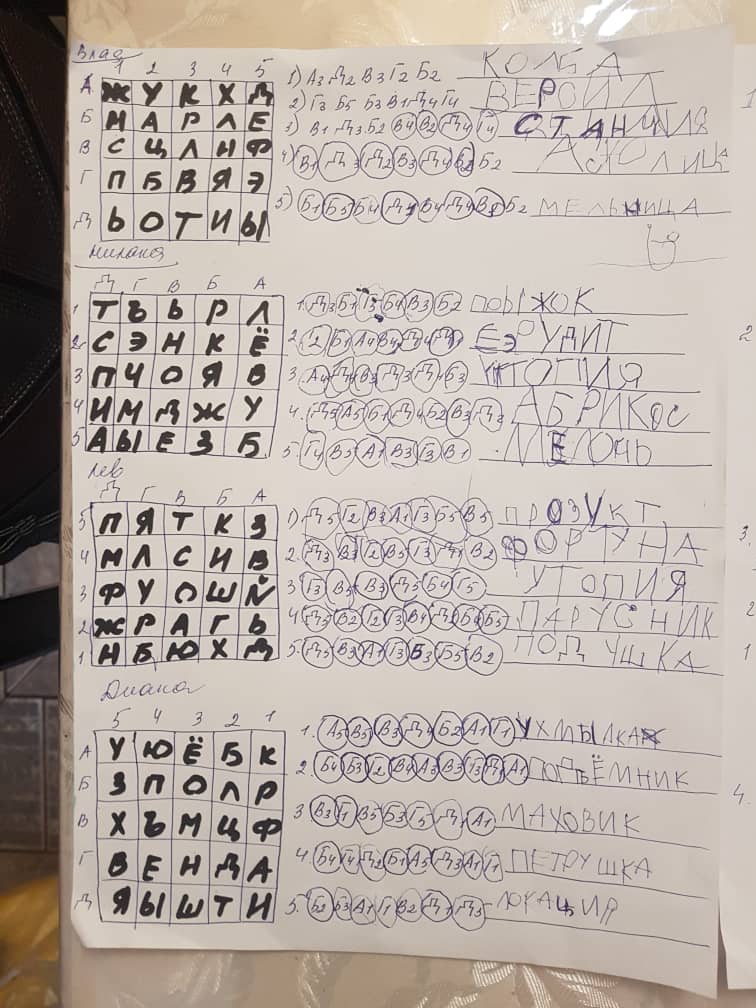 Влад
1 2 3 4 5
А Ж У К Х Д
Б М А Р Л Е
В С Ц Л Н Ф
Г П Б В Я Э
Д Ь О Т И Ы
1) А3 Д2 В3 Г2 Б2 КОЛБА
2) Г3 Б5 Б3 В1 Д4 Г4
3) В1 Д3 Б2 В4 В2 Д4 Г4
4) В1 Д3 Д2 В3 Д4 Б2 Б2
5) Б1 Б5 Б4 Д1 В4 Д4 В2 Б2 МЕЛЬНИЦА
Милана
Д Г В Б А
1 Т Ъ Ь Р Л
2 С Э Н К Ё
3 П Ч О Я В
4 И М Д Ж У
5 А Ы Е З Б
1. Д3 Б1 Г3 Б4 В3 Б2
2. Г2 Б1 А4 В4 Д4 Д1 ЭРУДИТ
3. А4 Д1 В3 Д3 Д4 Б3 УТОПИЯ
4. Д5 А5 Б1 Д4 Б2 В3 Д2 АБРИКОС
5. Г4 В5 А1 В3 Г3 В1
Лев
Д Г В Б А
5 П Я Т К З
4 М Л С И В
3 Ф У О Ш Й
2 Ж Р А Г Ь
1 Н Б Ю Х Д
1) Д5 Г2 В3 А1 Г3 Б5 В5
2. Д3 В3 Г2 В5 Г3 Д1 В2 ФОРТУНА
3 Г3 В5 В3 Д5 Б4 Г5 УТОПИЯ
4 Д5 В2 Г2 Г3 В4 Д1 Б4 Б5 ПАРУСНИК
5. Д5 В3 А1 Г3 Б3 Б5 В2 ПОДУШКА
Диана
5 4 3 2 1
А У Ю Ё Б К
Б З П О Л Р
В Х Ъ М Ц Ф
Г В Е Н Д А
Д Я Ы Ш Т И
1. А5 В5 В3 Д4 Б2 А1 Г1 УХМЫЛКА
2. Б4 Б3 Г2 В4 А3 В3 Г3 Д1 А1 ПОДЪЁМНИК
3 В3 Г1 В5 Б3 Г5 Д1 А1 МАХОВИК
4. Б4 Г4 Д2 Б1 А5 Д3 А1 Г1 ПЕТРУШКА
5. Б2 Б3 А1 Г1 В2 Д1 Д5 ЛОКАЦИЯ